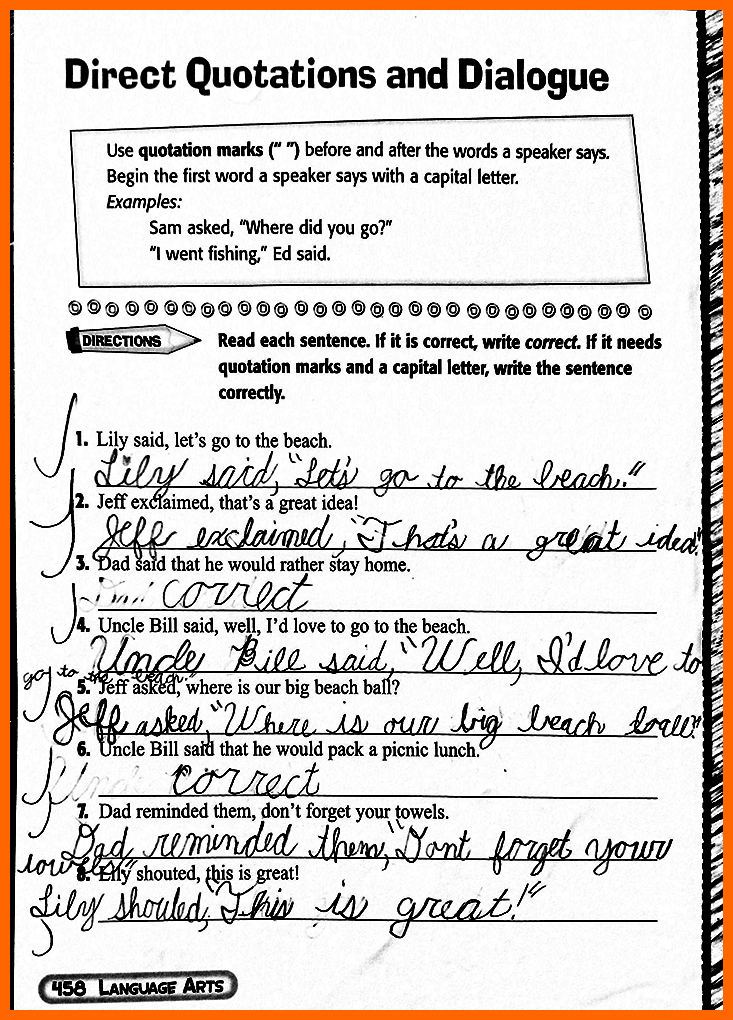 Direct Quotations and Dialogue
Use quotation marks (“ ”) before and after the words a speaker says.
Begin the first word a speaker says with a capital letter.
Examples:
Sam asked, “Where did you go?”
“I went fishing,” Ed said.
DIRECTIONS
Read each sentence. If it is correct, write correct. If it needs
quotation marks and a capital letter, write the sentence
correctly.
1. Lily said, let’s go to the beach.
Lily said, “Let's go to the beach.”
2. Jeff exclaimed, that’s a great idea!
Jeff exclaimed, “That's a great idea!”
3. Dad said that he would rather stay home.
correct
4. Uncle Bill said, well, I’d love to go to the beach.
Uncle Bill said, “Well, I'd love to
go to the beach.”
5. Jeff asked, where is our big beach ball?
Jeff asked, “Where is our big beach ball?”
6. Uncle Bill said that he would pack a picnic lunch.
correct
7. Dad reminded them, don’t forget your towels.
Dad reminded them, “Dont forget your
towels.”
8. Lily shouted, this is great!
Lily shouted, “This is great!”
458 LANGUAGE ARTS